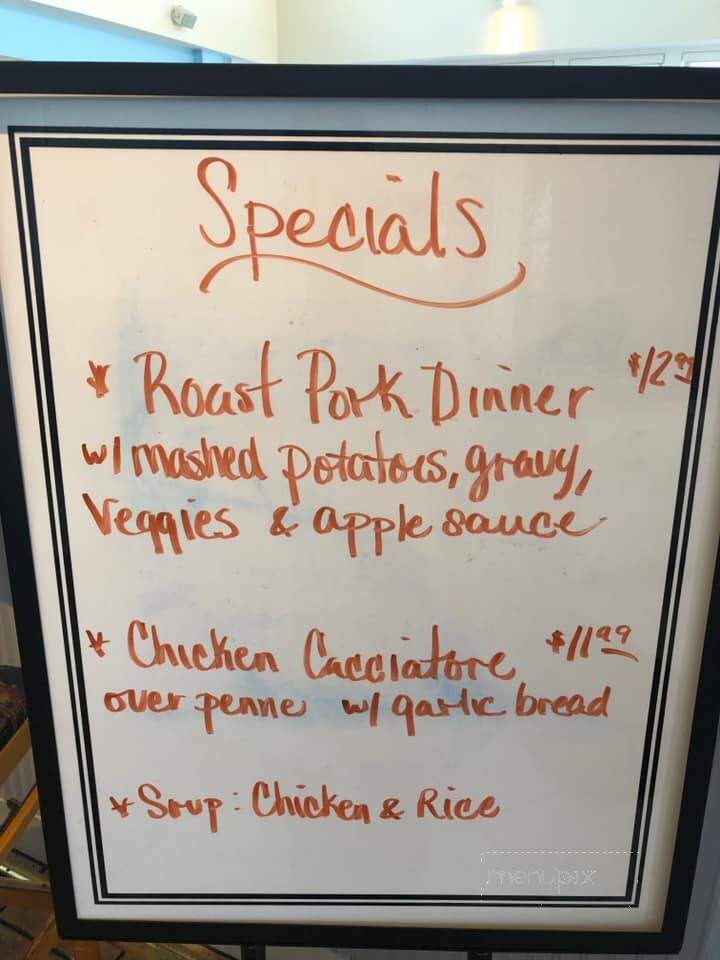 Specials
* Roast Pork Dinner $12.99
w/ mashed potatoes, gravy,
Veggies & apple sauce
* Chicken Cacciatore $11.99
over penne w/ garlic bread
* Soup: Chicken & Rice
menupix